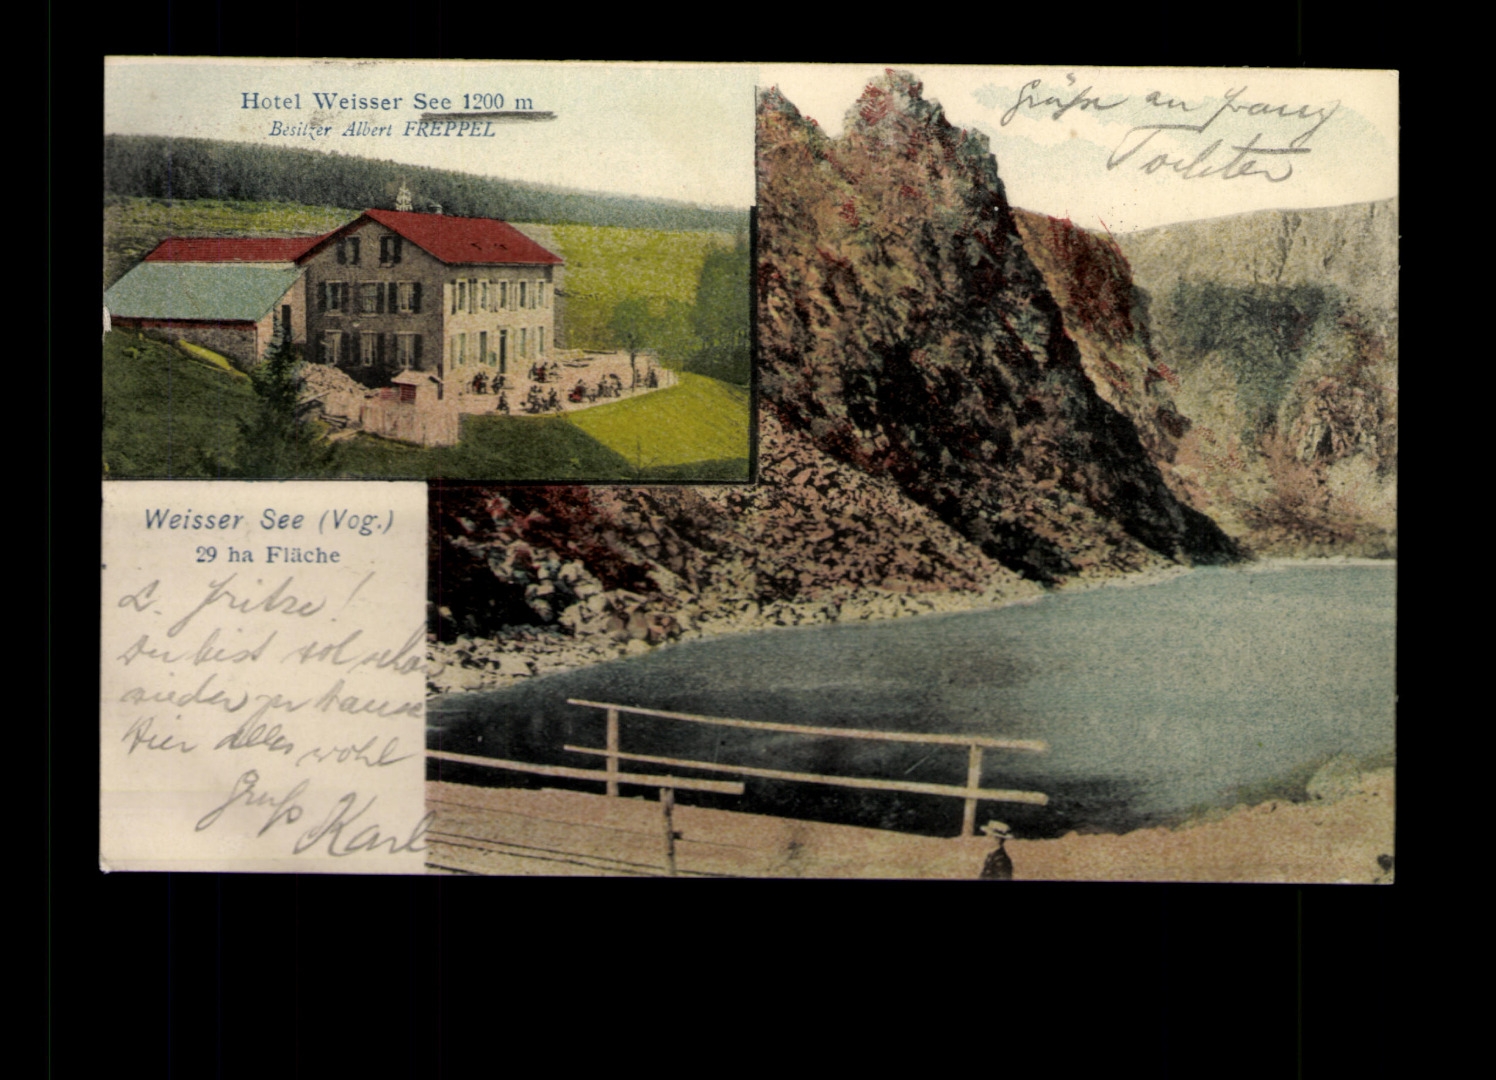 Hotel Weisser See 1200 m
Besitzer Albert FREPPEL
Grüße an
Tochter
Weisser See (Vog.)
29 ha Fläche
L. Fritze!
Du bist schon
wieder zu Hause
Hier Alles wohl
Gruß
Karl